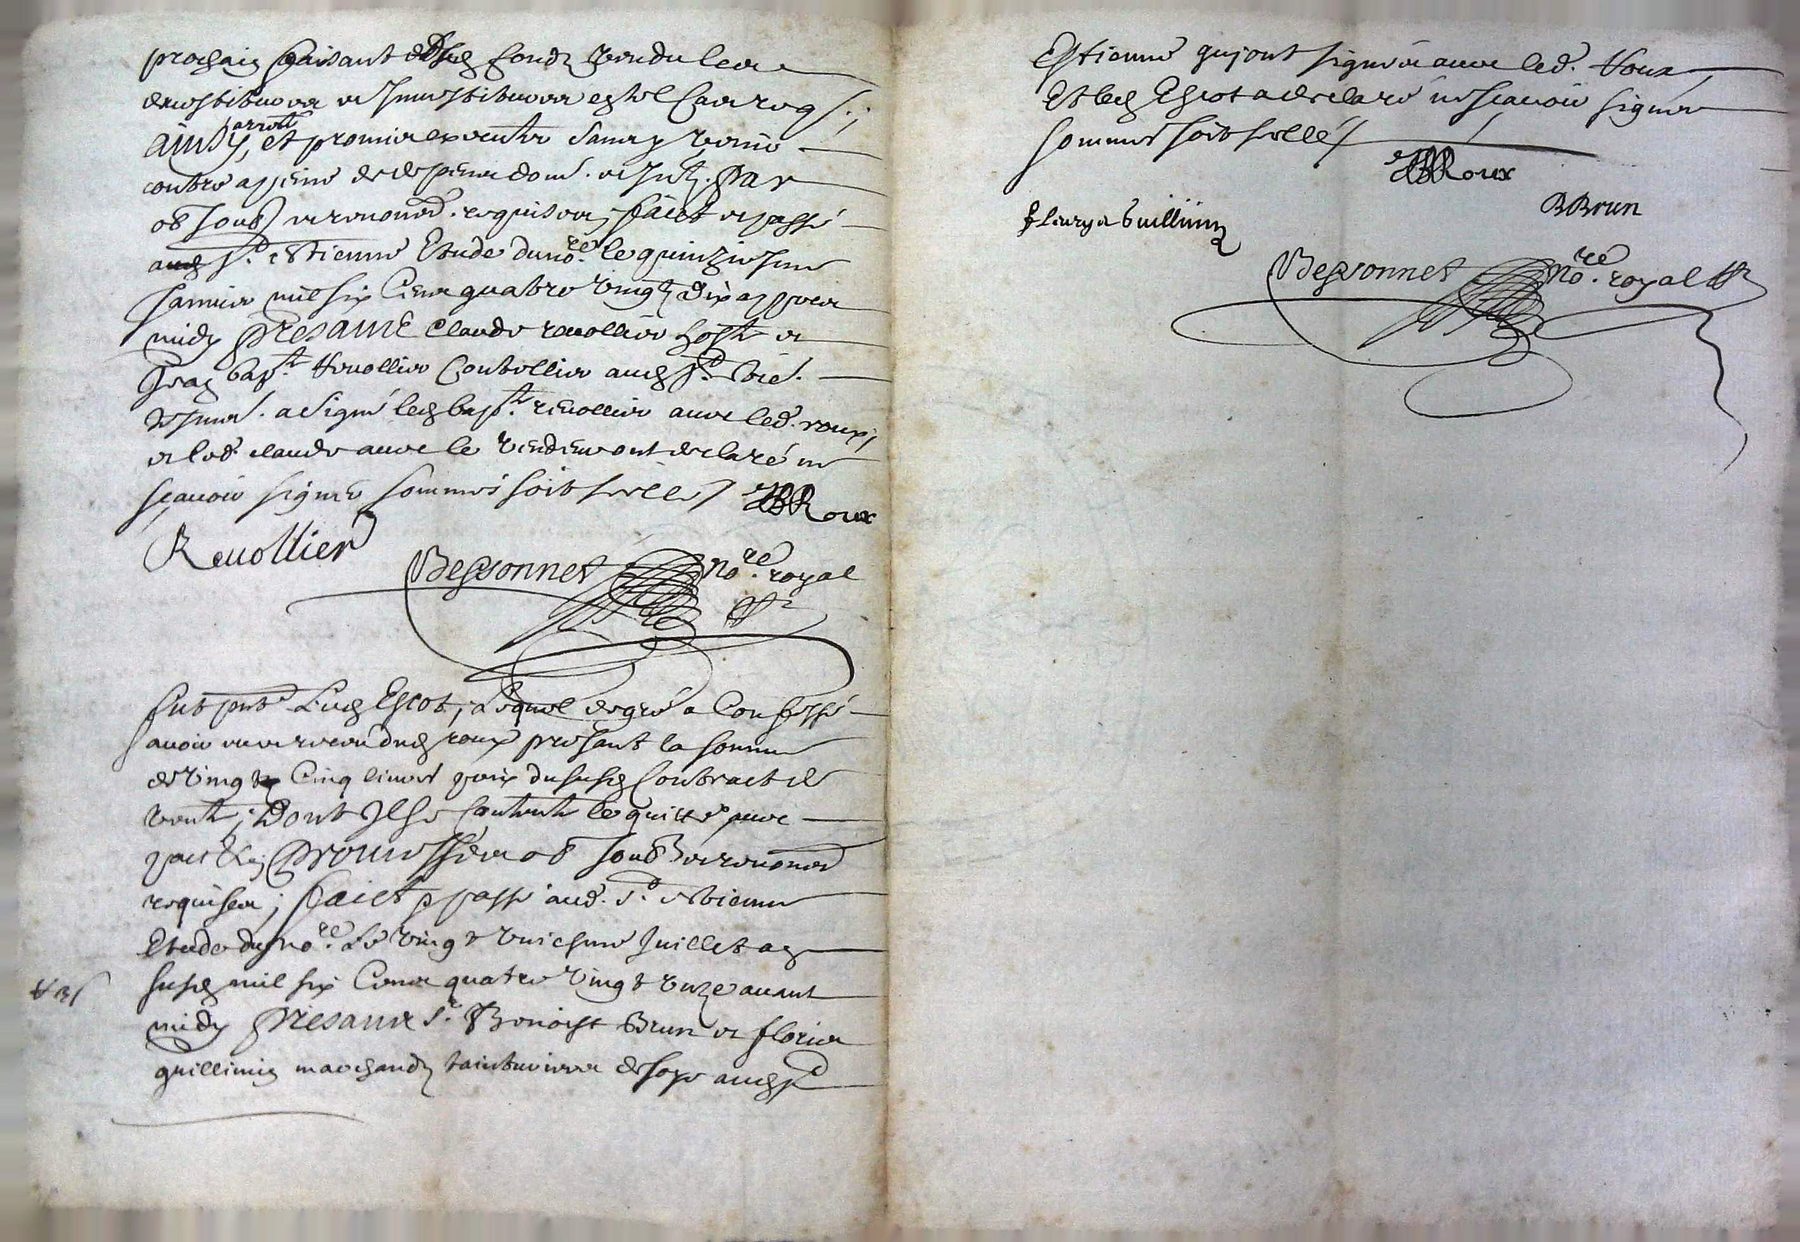 prochain faisant dud. fondz vendu led.
devestiteure et Investiteure
ainsy arresté, et promis executer sans y venir
contre a peine de despens dom. et Intz. par
ob soub. et renond. requises, faict et passé
aud. St. Estienne Etude du nore. le quinziesme
Janvier mil six Cent quatre vingtz dix appres
midy Presantz Claude revollier hoste et
Jean bapt. Revollier Coutellier aud. St. Estie.
a signé led. bapt. revollier avec led. roux,
et led. claude avec le vendeur ont declaré ne
sçavoir signer sommés soit sellé / JBRoux
Revollier
Bessonnet nore. royal
fut pnt. Led. Escot, Lequel de gré a Confessé
avoir eu et receu dud. roux presant la somme
de vingt Cinq livres prix du susd. Contract de
vente, Dont Il se contente le quitte avec
pact &a. Promesses ob soub. et renond.
requises, faict & passé aud. St. Estienne
Etude du nore. Le vingt huictiesme Juillet apres
susd. mil six Cent quatre vingt unze avant
midy Presantz Sr. Benoist Brun et florier
guillimin marchandz tainturiers de soye aud. St.
Estienne qui ont signés avec led. Roux,
Et led. Escot a declaré ne sçavoir signer
sommé soit sellé /
JBRoux
BBrun
fleury Guillimin
Bessonnet nore. royal